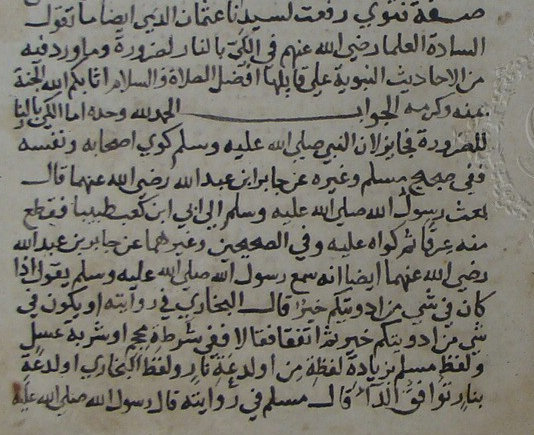 صفة فتوي رفعت لسيدنا عثمان الديبي ايضا ما تقول
السادة العلما رضي الله عنهم في الكي بالنار لضرورة وما ورد فيه
من الاحاديث النبوية علي قايلها افضل الصلاة والسلام اثابكم الله الجنة
بمنه وكرمه الجواب الحمد لله وحده اما الكي بالنار
للضرورة فجايز لان النبي صلي الله عليه وسلم كوي اصحابه ونفسه
ففي صحيح مسلم وغيره عن جابر ابن عبد الله رضي الله عنهما قال
بعث رسول الله صلي الله عليه وسلم الي ابي ابن كعب طبيبا فقطع
منه عرقا ثم كواه عليه وفي الصحيحين وغيرهما عن جابر بن عبد الله
رضي الله عنهما ايضا انه سمع رسول الله صلي الله عليه وسلم يقول اذا
كان في شي من ادويتكم خير قال البخاري في روايته او يكون في
شي من ادويتكم خير ثم اتفقا فقالا ففي شرطة محجم او شربة عسل
ولفظ مسلم بزيادة لفظة من او لدغة نار ولفظ البخاري او لدغة
بنار توافق الداء قال مسلم في روايته قال رسول الله صلي الله عليه